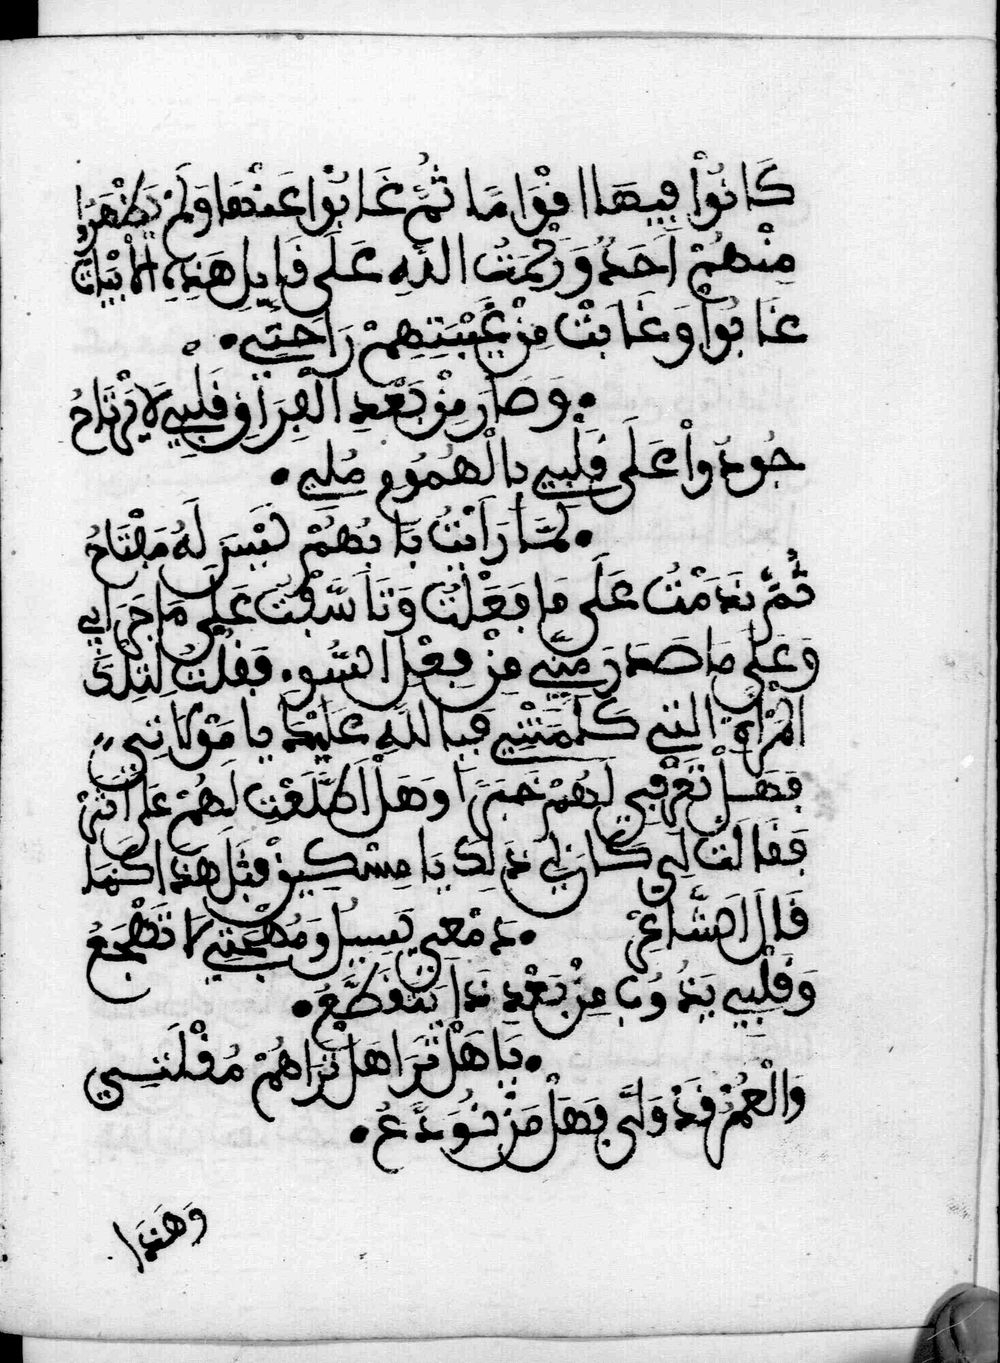 كَانُوْا فِيهَا افْوَامًا ثُمَّ غَابُوا عَنْهَا وَلَمْ يَظْهَرْ
مِنْهُمْ اَحَدُ وَرَحْمَتُ اللَّهِ عَلَى فَايِلِ هَذِهِ الْاَبْيَات
غَابُوْا وَغَابَتْ مِنْ غَيْبَتِهِمْ رَاحَتِي •
• وَصَارَ مِنْ بَعْدِ الْفِرَاقِ قَلْبِي لَا يَرْتَاحُ
جُودُواْ عَلَى قَلْبِي بِالْهُمُومِ مُلِي •
• لَمَّا رَاَيْتُ بَابُهُمْ لَيْسَ لَهُ مِفْتَاحُ
ثُمَّ نَدَمْتُ عَلَى مَا فَعَلْتُ وَتَاَسَّفْتُ عَلَى مَا جَرَا لِي
وَعَلَى مَا صَدَرَ مِنِّي مِنْ فِعْلِ السُّوءِ فَقُلْتُ لِتِلْكَ
الْمَرْاَةِ التِي كَلَّمَتْنِي فَبِاللَّهِ عَلَيْكِ يَا مَوْلَاتِي
فَهَلْ تَعْرَفِي لَهُمْ خَبَرًا اَوَهَلْ اَطَّلَعْتِ لَهُمْ عَلَى اَثَرْ
فَقَالَتْ لِي كَانَ لِي ذَلِكَ يَا مِسْكِينْ قَبْلَ هَذَا كَمَا
قَالَ الشَّاعِرْ • دَمْعِي يَسِيلُ وَمُهْجَتِي لَا تَهْجَعُ
وَقَلْبِي يَذُوبُ مِنْ بَعْدِ ذَا يَتَقَطَّعُ •
• يَا هَلْ تَرَا هَلْ تَرَاهُمْ مُقْلَتِي
وَالْعُمْرْ قَدْ وَلَّى فَهَلْ مَنْ نُوَدَّعُ •
وَهَذَا